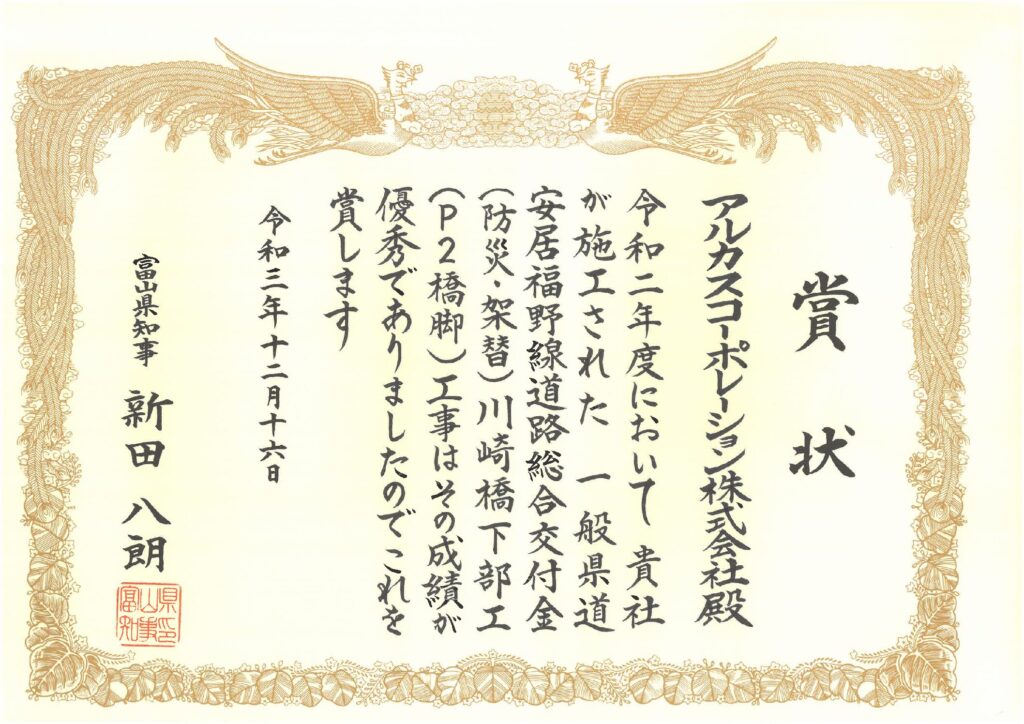 賞状
アルカスコーポレーション株式会社殿
令和二年度において 貴社
が施工された 一般県道
安居福野線道路総合交付金
(防災・架替)川崎橋下部工
(P2橋脚)工事はその成績が
優秀でありましたのでこれを
賞します
令和三年十二月十六日
富山県知事 新田八朗
富山県知事印